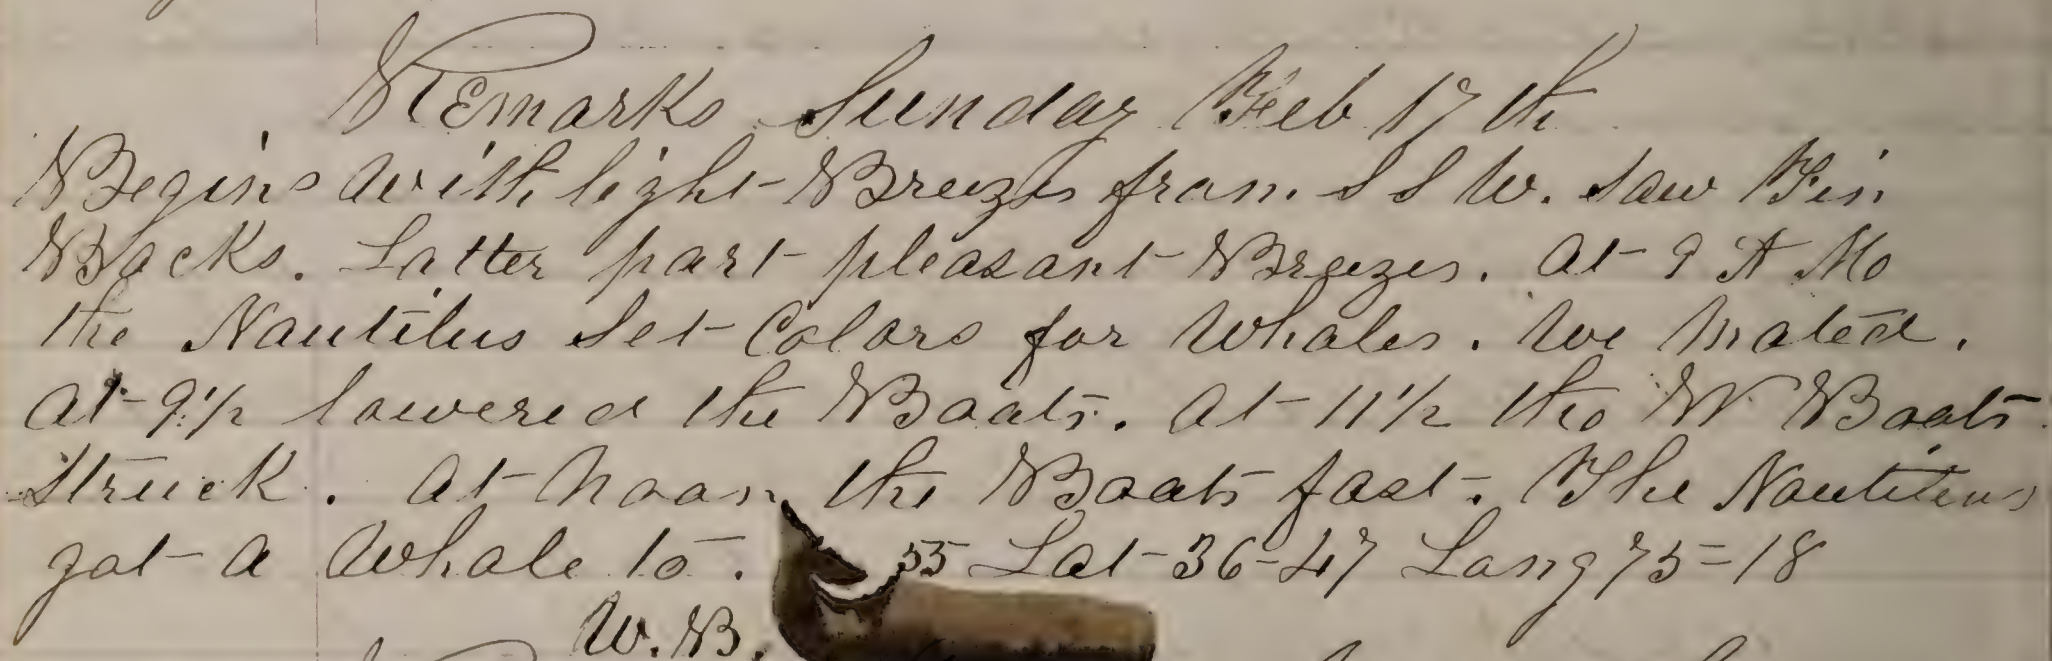 Remarks Sunday Feb 17th
Begins with light Breezes from S S W. Saw Fin
Backs. Latter part pleasant Breezes. At 9 A M
the Nautilus Set Colors for Whales. We Mated.
At 9 1/2 lowered the Boats. At 11 1/2 the W Boats
Struck. At Noon the Boats fast. The Nautilus
got a Whale to. 55 Lat 36-47 Long 75=18
W. B.